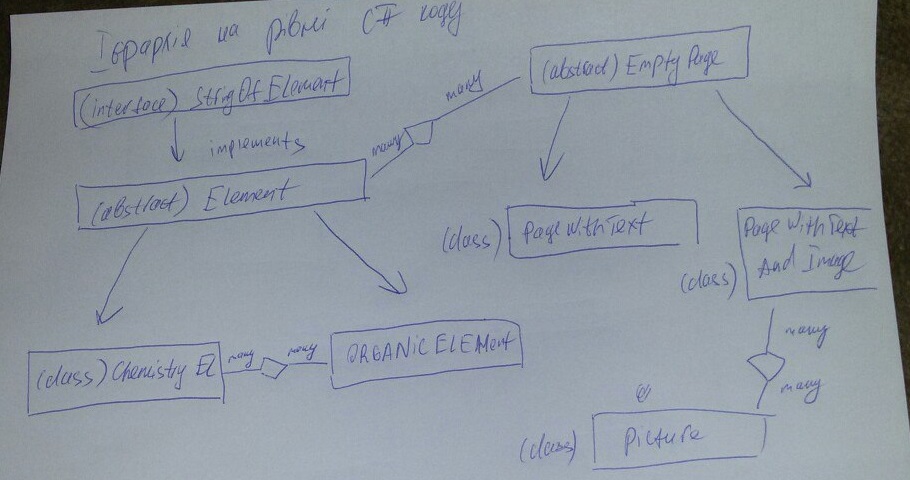 Ієрархія на рівні C# коду
(interface) StringOfElement
implements
(abstract) Element
many
many
(abstract) Empty Page
(class) PageWithText
(class) Page With Text
And Image
(class) Chemistry El
many
many
ORGANIC ELEMENT
many
many
(class) Picture